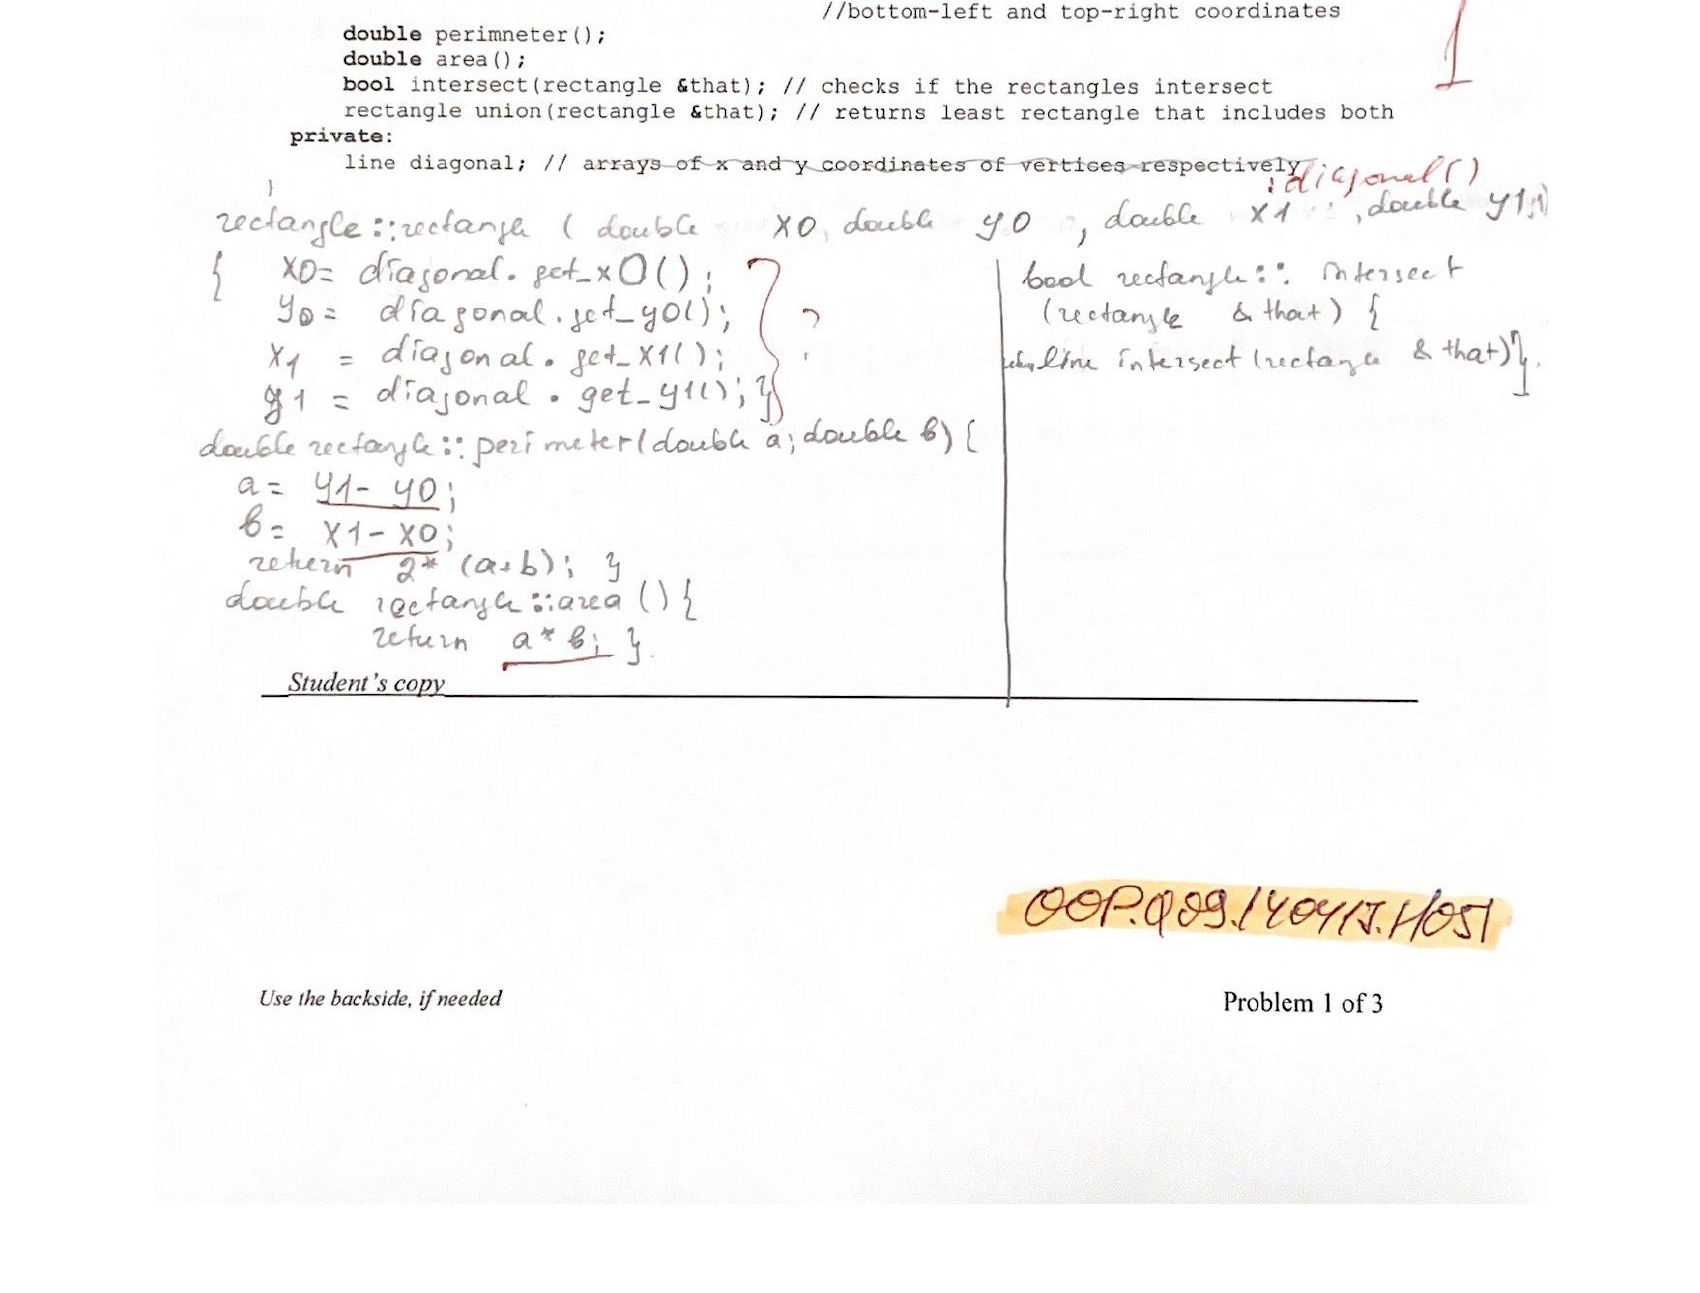 //bottom-left and top-right coordinates
1
double perimneter();
double area();
bool intersect(rectangle &that); // checks if the rectangles intersect
rectangle union(rectangle &that); // returns least rectangle that includes both
private:
line diagonal; // arrays of x and y coordinates of vertices respectively
}
:diagonal()
rectangle::rectangle ( double x0, double y0 , double x1 , double y1)
{ x0= diagonal. get_x0();
y0= diagonal.get_y0();
x1 = diagonal. get_x1();
y1 = diagonal . get_y1(); }
?
double rectangle :: perimeter(double a; double b) {
a= y1- y0;
b= x1- x0;
return 2* (a+b); }
double rectangle ::area () {
return a* b; }
bool rectangle:: intersect
(rectangle & that) {
line intersect (rectangle & that)}.
Student's copy
OOP.Q09.140415.H051
Use the backside, if needed
Problem 1 of 3